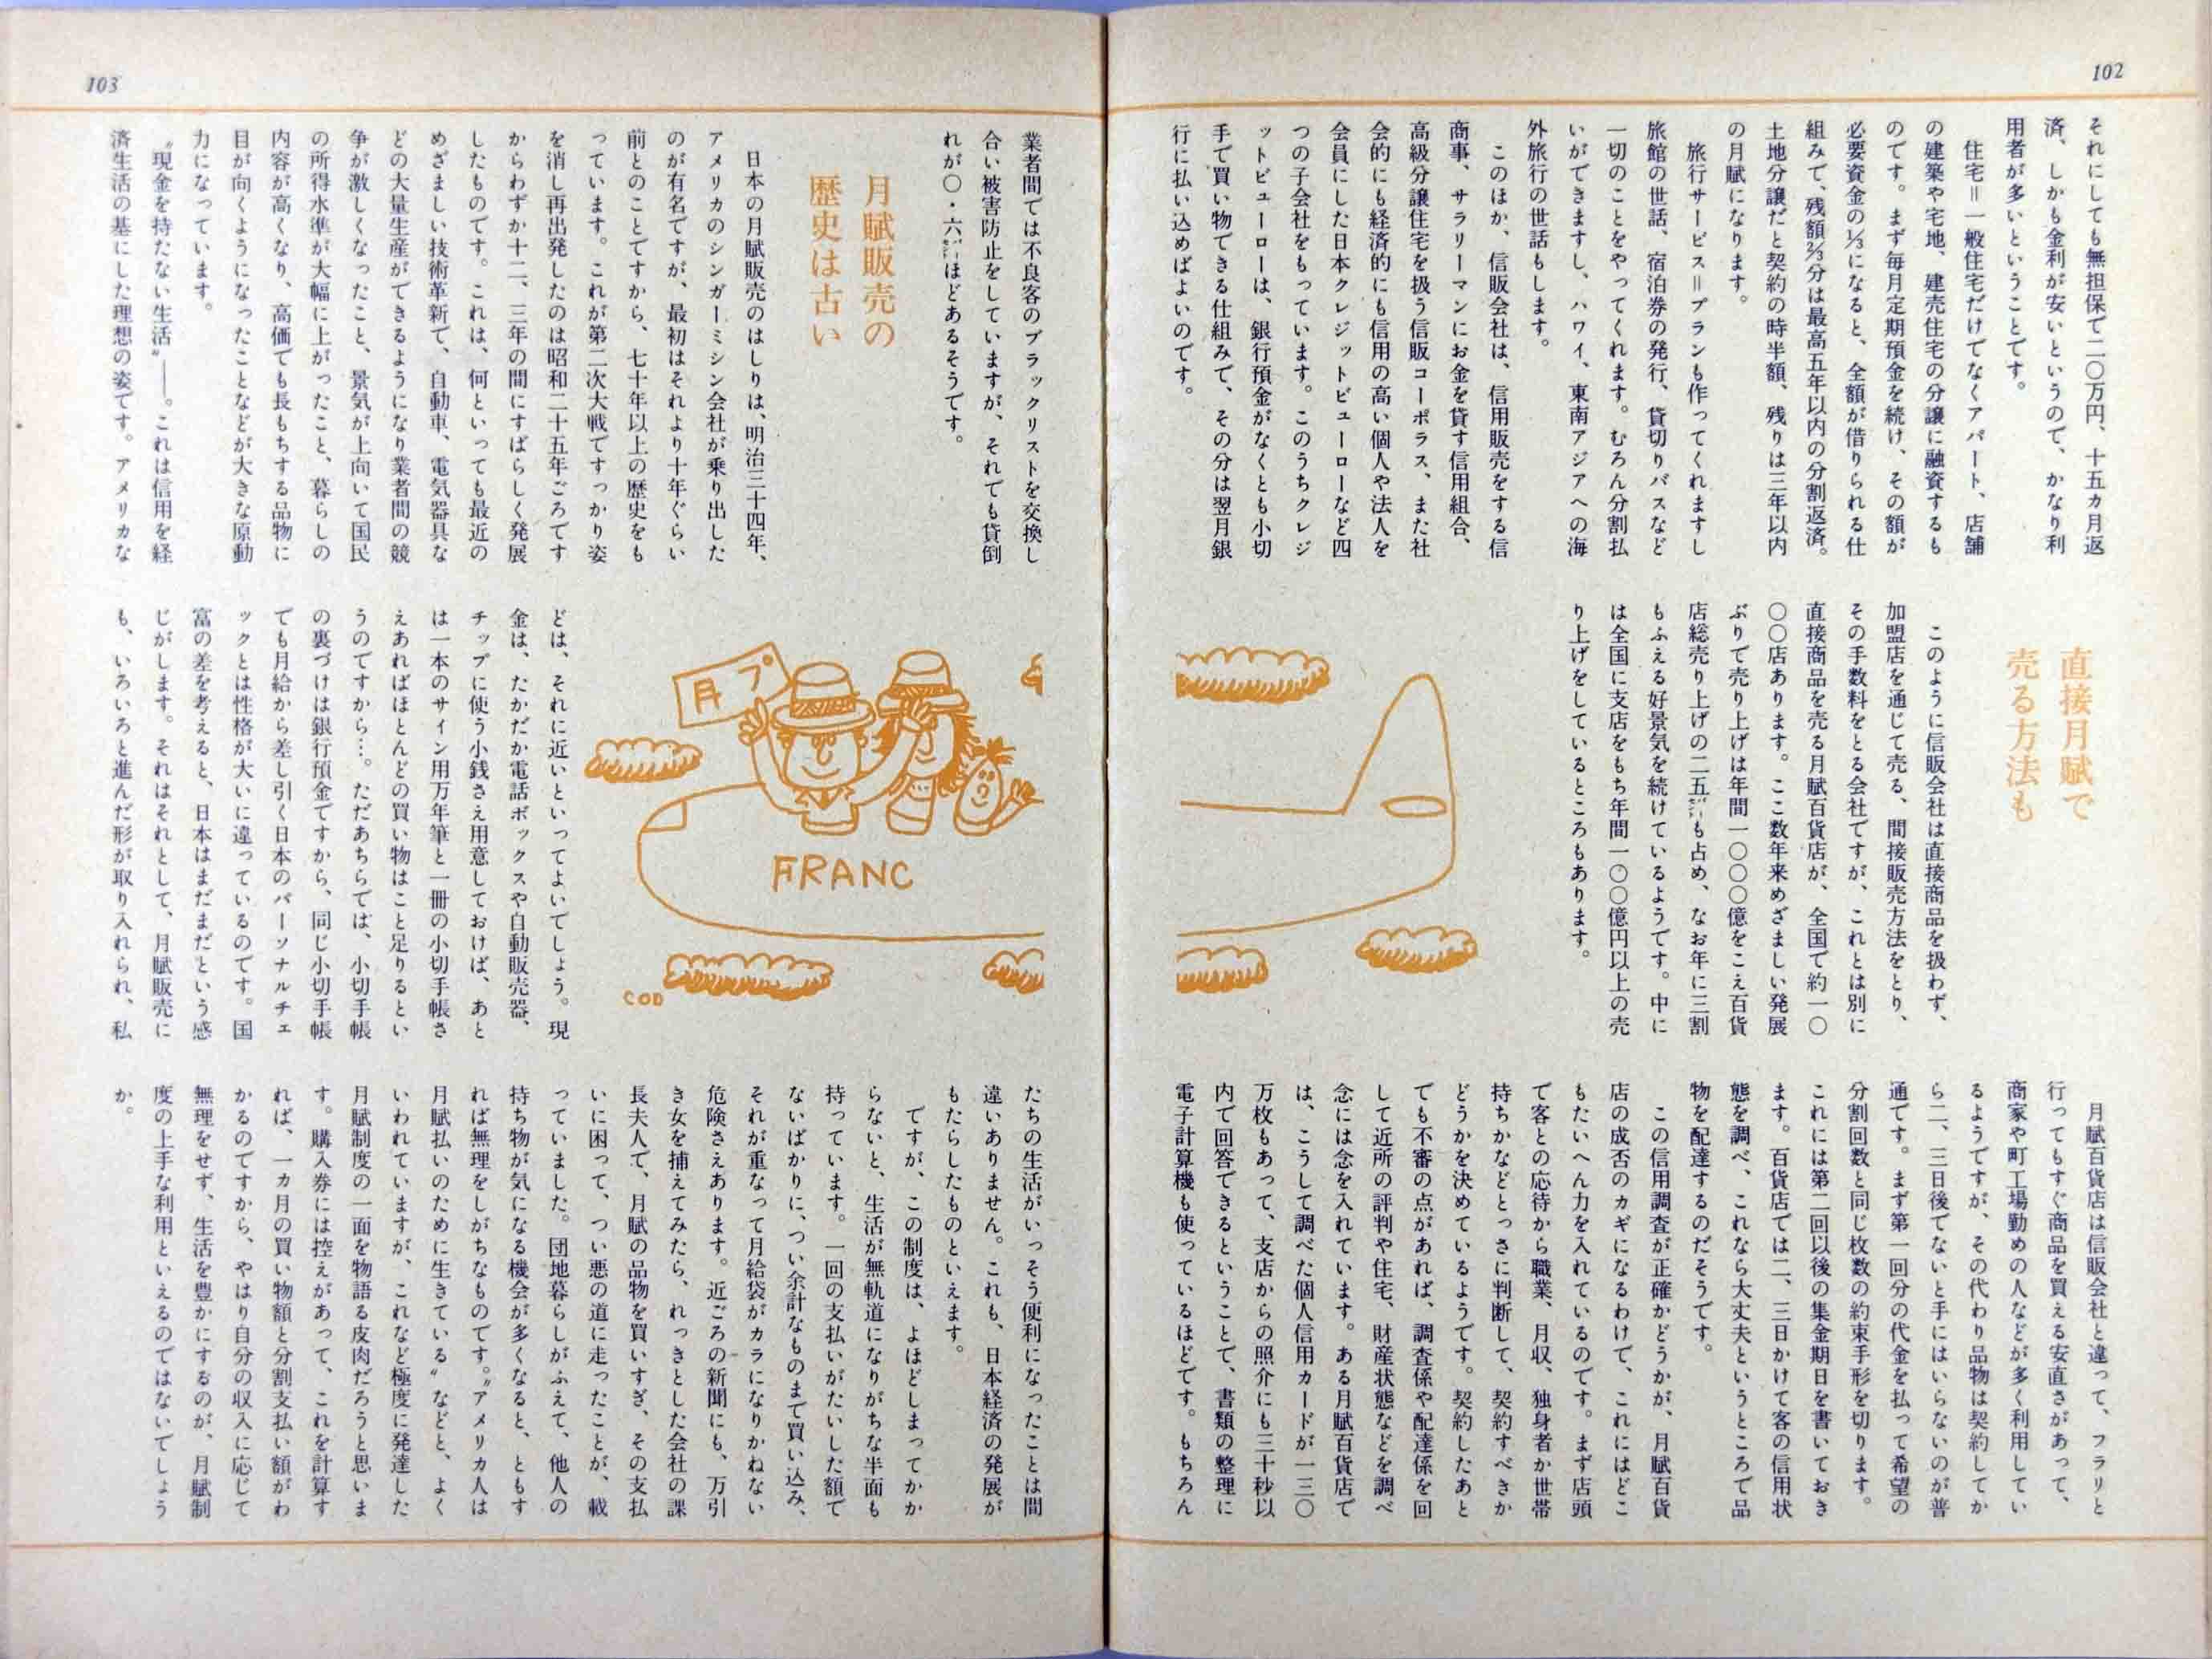 102
それにしても無担保で二〇万円、十五カ月返
済、しかも金利が安いというので、かなり利
用者が多いということです。
住宅＝一般住宅だけでなくアパート、店舗
の建築や宅地、建売住宅の分譲に融資するも
のです。まず毎月定期預金を続け、その額が
必要資金の⅓になると、全額が借りられる仕
組みで、残額⅔分は最高五年以内の分割返済。
土地分譲だと契約の時半額、残りは三年以内
の月賦になります。
旅行サービス＝プランも作ってくれますし
旅館の世話、宿泊券の発行、貸切りバスなど
一切のことをやってくれます。むろん分割払
いができますし、ハワイ、東南アジアへの海
外旅行の世話もします。
このほか、信販会社は、信用販売をする信
商事、サラリーマンにお金を貸す信用組合、
高級分譲住宅を扱う信販コーポラス、また社
会的にも経済的にも信用の高い個人や法人を
会員にした日本クレジットビューローなど四
つの子会社をもっています。このうちクレジ
ットビューローは、銀行預金がなくとも小切
手で買い物できる仕組みで、その分は翌月銀
行に払い込めばよいのです。
直接月賦で
売る方法も
このように信販会社は直接商品を扱わず、
加盟店を通じて売る、間接販売方法をとり、
その手数料をとる会社ですが、これとは別に
直接商品を売る月賦百貨店が、全国で約一〇
〇〇店あります。ここ数年来めざましい発展
ぶりで売り上げは年間一〇〇〇億をこえ百貨
店総売り上げの二五㌫も占め、なお年に三割
もふえる好景気を続けているようです。中に
は全国に支店をもち年間一〇〇億円以上の売
り上げをしているところもあります。
月賦百貨店は信販会社と違って、フラリと
行ってもすぐ商品を買える安直さがあって、
商家や町工場勤めの人などが多く利用してい
るようですが、その代わり品物は契約してか
ら二、三日後でないと手にはいらないのが普
通です。まず第一回分の代金を払って希望の
分割回数と同じ枚数の約束手形を切ります。
これには第二回以後の集金期日を書いておき
ます。百貨店では二、三日かけて客の信用状
態を調べ、これなら大丈夫というところで品
物を配達するのだそうです。
この信用調査が正確かどうかが、月賦百貨
店の成否のカギになるわけで、これにはどこ
もたいへん力を入れているのです。まず店頭
で客との応待から職業、月収、独身者か世帯
持ちかなどとっさに判断して、契約すべきか
どうかを決めているようです。契約したあと
でも不審の点があれば、調査係や配達係を回
して近所の評判や住宅、財産状態などを調べ
念には念を入れています。ある月賦百貨店で
は、こうして調べた個人信用カードが一三〇
万枚もあって、支店からの照介にも三十秒以
内で回答できるということで、書類の整理に
電子計算機も使っているほどです。もちろん
103
業者間では不良客のブラックリストを交換し
合い被害防止をしていますが、それでも貸倒
れが〇・六㌫ほどあるそうです。
月賦販売の
歴史は古い
日本の月賦販売のはしりは、明治三十四年、
アメリカのシンガーミシン会社が乗り出した
のが有名ですが、最初はそれより十年ぐらい
前とのことですから、七十年以上の歴史をも
っています。これが第二次大戦ですっかり姿
を消し再出発したのは昭和二十五年ごろです
からわずか十二、三年の間にすばらしく発展
したものです。これは、何といっても最近の
めざましい技術革新で、自動車、電気器具な
どの大量生産ができるようになり業者間の競
争が激しくなったこと、景気が上向いて国民
の所得水準が大幅に上がったこと、暮らしの
内容が高くなり、高価でも長もちする品物に
目が向くようになったことなどが大きな原動
力になっています。
〝現金を持たない生活〟――。これは信用を経
済生活の基にした理想の姿です。アメリカな
月プ
FRANC
COD
どは、それに近いといってよいでしょう。現
金は、たかだか電話ボックスや自動販売器、
チップに使う小銭さえ用意しておけば、あと
は一本のサイン用万年筆と一冊の小切手帳さ
えあればほとんどの買い物はこと足りるとい
うのですから…。ただあちらでは、小切手帳
の裏づけは銀行預金ですから、同じ小切手帳
でも月給から差し引く日本のパーソナルチェ
ックとは性格が大いに違っているのです。国
富の差を考えると、日本はまだまだという感
じがします。それはそれとして、月賦販売に
も、いろいろと進んだ形が取り入れられ、私
たちの生活がいっそう便利になったことは間
違いありません。これも、日本経済の発展が
もたらしたものといえます。
ですが、この制度は、よほどしまってかか
らないと、生活が無軌道になりがちな半面も
持っています。一回の支払いがたいした額で
ないばかりに、つい余計なものまで買い込み、
それが重なって月給袋がカラになりかねない
危険さえあります。近ごろの新聞にも、万引
き女を捕えてみたら、れっきとした会社の課
長夫人で、月賦の品物を買いすぎ、その支払
いに困って、つい悪の道に走ったことが、載
っていました。団地暮らしがふえて、他人の
持ち物が気になる機会が多くなると、ともす
れば無理をしがちなものです。〝アメリカ人は
月賦払いのために生きている〟などと、よく
いわれていますが、これなど極度に発達した
月賦制度の一面を物語る皮肉だろうと思いま
す。購入券には控えがあって、これを計算す
れば、一カ月の買い物額と分割支払い額がわ
かるのですから、やはり自分の収入に応じて
無理をせず、生活を豊かにするのが、月賦制
度の上手な利用といえるのではないでしょう
か。